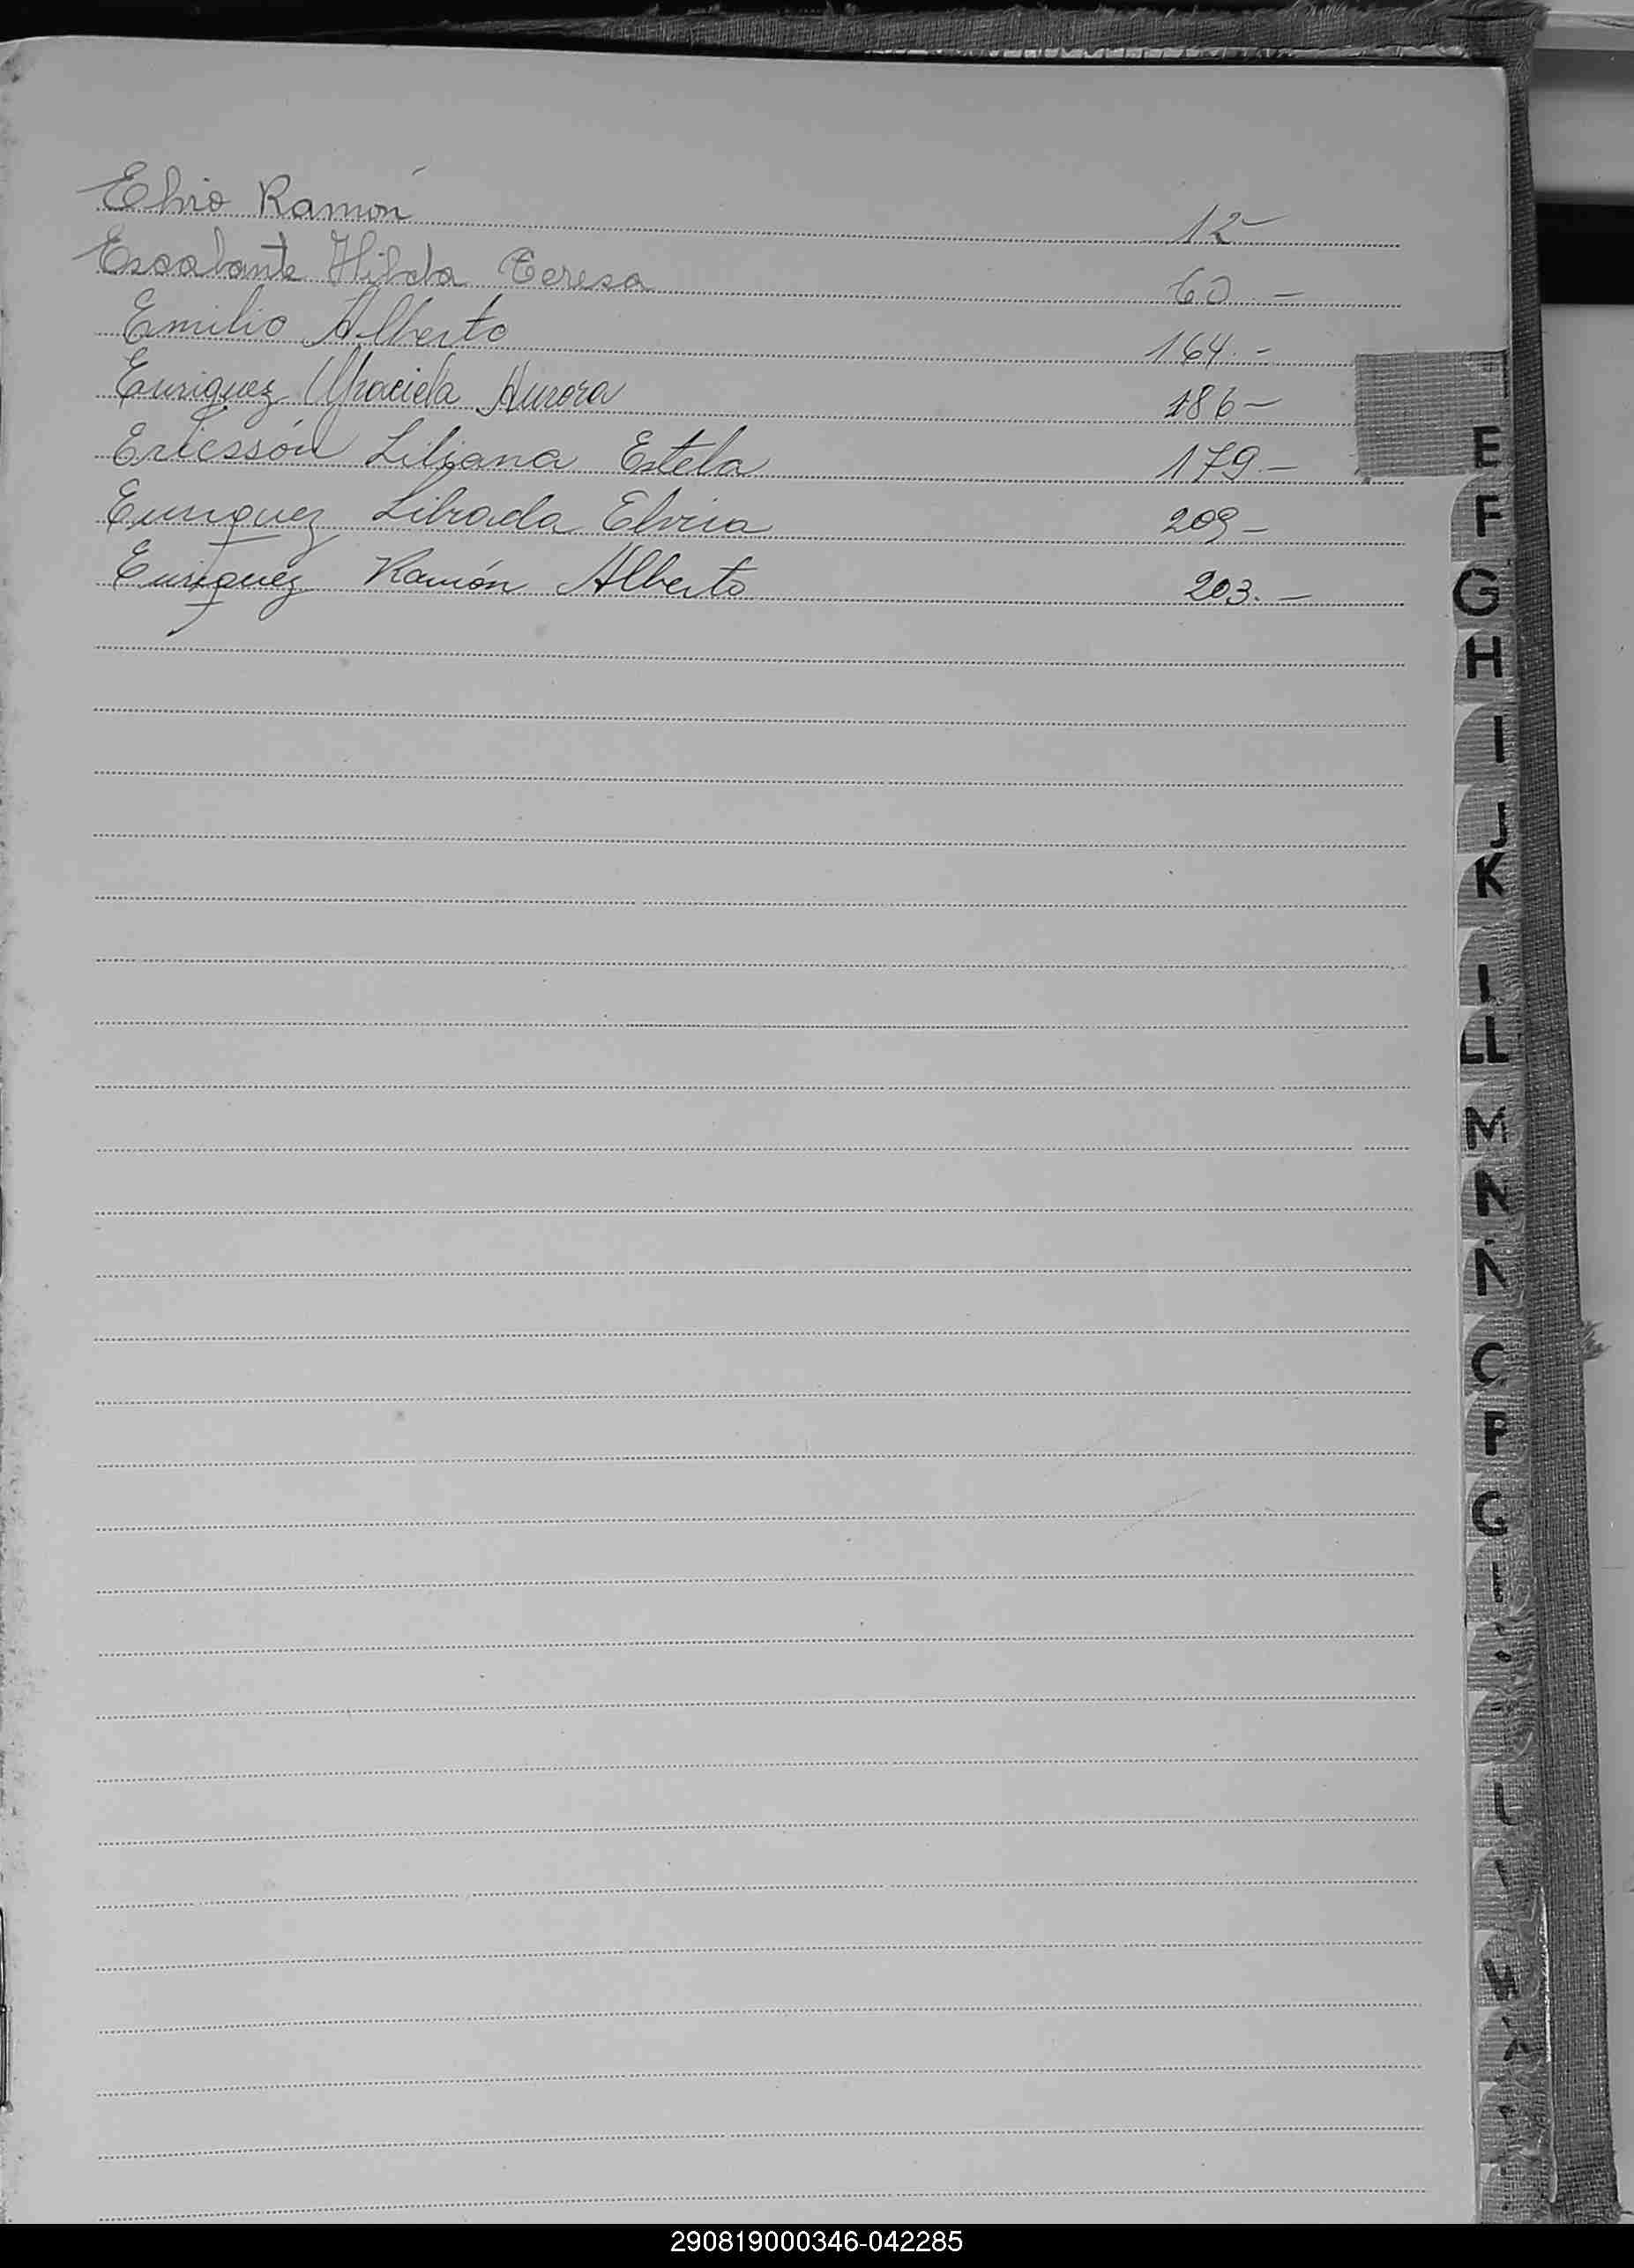 Elvio Ramón 12-
Escalante Hilda Teresa 60.-
Emilio Alberto 164.-
Enriquez Graciela Aurora 186-
Ericssón Liliana Estela 179.-
Enriquez Librada Elvira 209-
Enriquez Ramón Alberto 203.-
E
F
G
H
I
J
K
LL
M
N
P
290819000346-042285